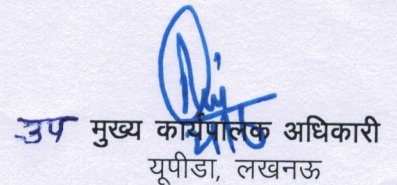 उप मुख्य कार्यपालक अधिकारी
यूपीडा, लखनऊ